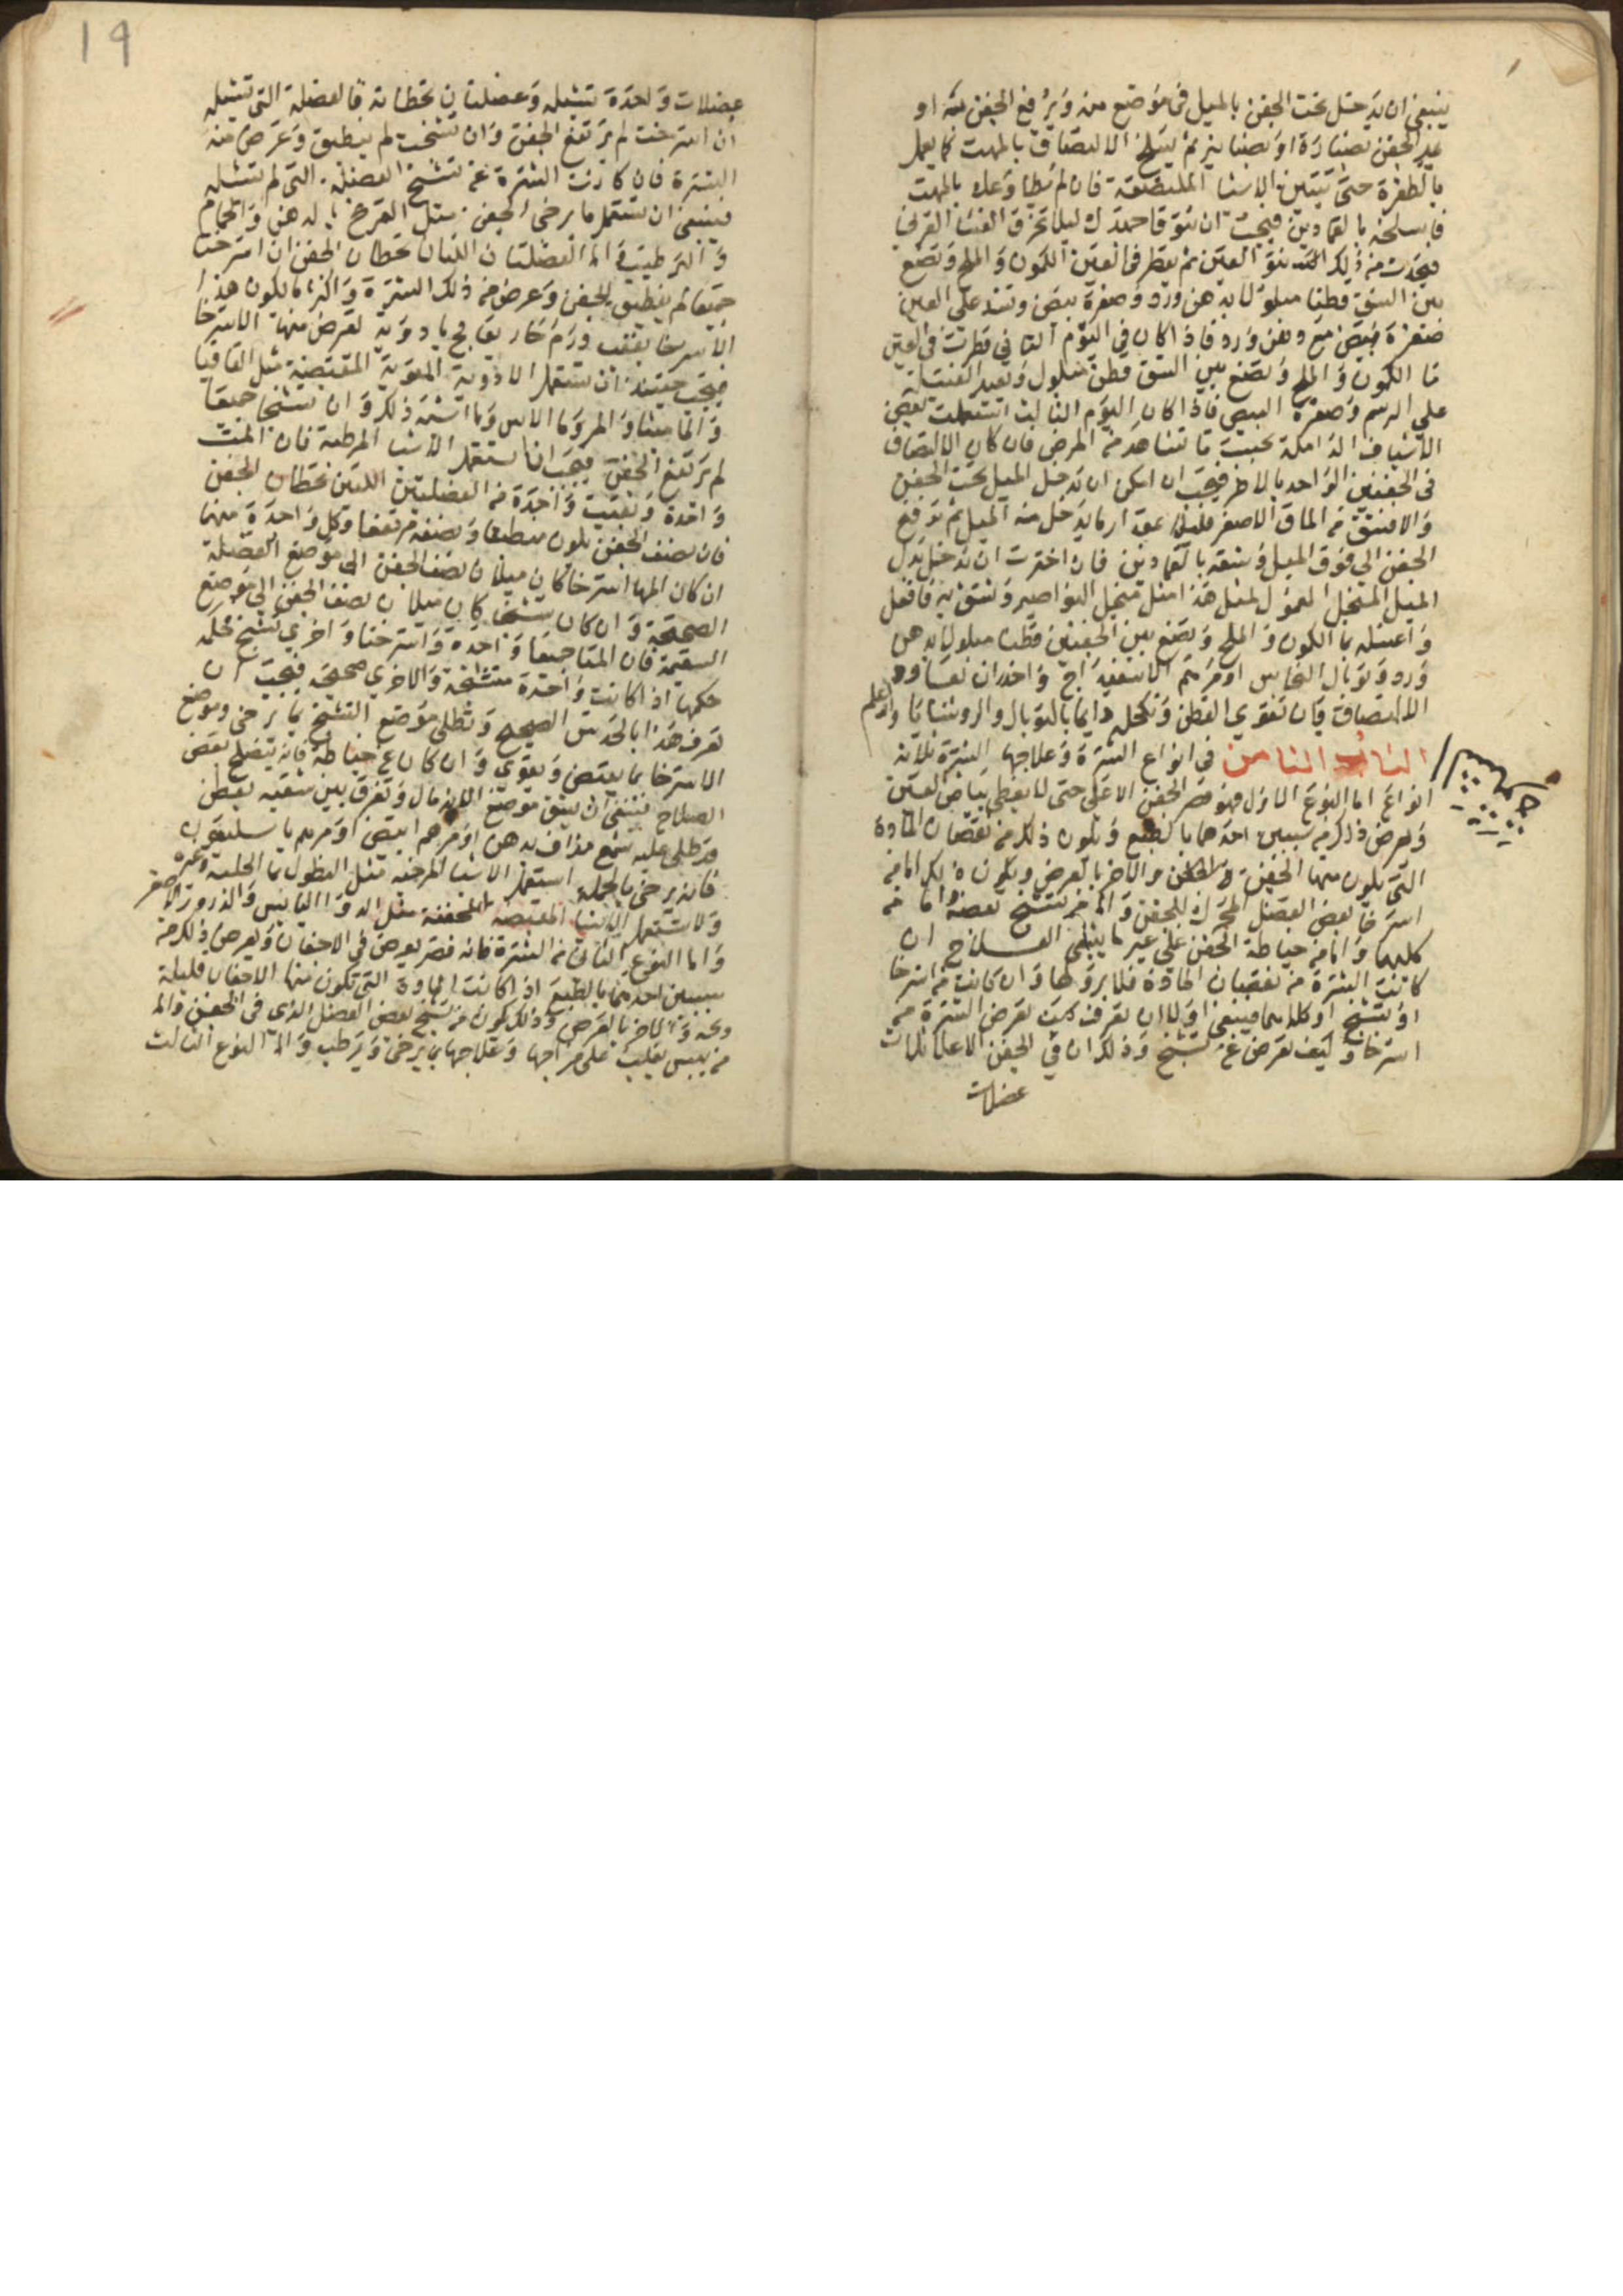 ينبغي ان تدخل تحت الجفن بالميل في موضع منه وترفع الجفن منه او
تمد الجفن بصنارة او بصنانير ثم يسلخ الالتصاق بالمهت كما يعمل
بالظفرة حتى تتبين الاشيا الملتصقة فان لم
فاسلخه بالقمادين فيجب ان تتوقا جهدك ليلا تخرق الغشا القرني
فيحدث من ذلك نتو العين ثم يقطر في العين الكمون والملح وتضع
بين الشق قطنا مبلولا بدهن ورد وصفرة بيض وتشد على العين
صفرة بيض مع دهن ورد فاذا كان في اليوم الثاني قطرت في العين
ما الكمون والملح وتضع بين الشق قطن مبلول وتعيد
على الرسم وصفرة البيض فاذا كان اليوم الثالث استعملت بعض
الاشياف الدامكة بحيث ما تشاهد من المرض فان كان الالتصاق
في الجفنين الواحد بالاخر فيجب ان امكن ان تدخل الميل تحت الجفن
والا فشق من الماق الاصغر قليلا مقدار ما يدخل منه الميل ثم ترفع
الجفن الى فوق الميل وشقه بالقمادين فان اخترت ان تدخل بدل
الميل المنجل المعمول لمثل هذا مثل منجل النواصير وتشق به فافعل
واغسله بما الكمون والملح وتضع بين الجفنين قطنا مبلولا بدهن
ورد وتوبال النحاس او مرهم الاسفيداج واحذر ان يعاود
الالتصاق بان تقوي القطن وتكحله دايما بالتوبال والروشنايا والله اعلم
الباب الثامن في انواع الشترة وعلاجها الشترة ثلاثة
انواع اما النوع الاول فهو قصر الجفن الاعلى حتى لا يغطي بياض العين
ويعرض ذلك من سببين احدهما بالطبع ويكون ذلك من نقصان المادة
التي يكون منها الجفن والاخر بالعرض ويكون ذلك اما من
استرخا بعض العضل المحرك للجفن واما من تشنج بعضه اما من
كلاهما واما من خياطة الجفن على غير ما ينبغي العلاج ان
كانت الشترة من نقصان المادة فلا برو لها وان كانت من استرخا
او تشنج او كلاهما فينبغي اولا ان تعرف كيف تعرض الشترة من
استرخا وكيف تعرض عن تشنج وذلك ان في الجفن الاعلا ثلاث
عضلات
19
عضلات واحدة تشيله وعضلتان تحطانه فالعضلة التي تشيله
ان استرخت لم يرتفع الجفن وان تشنجت لم ينطبق وعرض منه
الشترة فان كانت الشترة عن تشنج العضلة التي تشيله
فينبغي ان تستعمل ما يرخي الجفن مثل التمرخ بالدهن والحمام
والترطيب واما العضلتان اللتان تحطان الجفن ان استرختا
جميعا لم ينطبق الجفن وعرض من ذلك الشترة واكثر ما يكون هذا
الاسترخا بعقب ورم حار يعالج بادوية تعرض منها الاسترخا
فيجب حينيذ ان تستعمل الادوية المقوية المقبضة مثل القاقيا
والماميثا والمر وما الاس وما اشبه ذلك وان تشنجا جميعا
لم يرتفع الجفن فيجب ان تستعمل الاشيا المرطبة فان المت
واحدة وبقيت واحدة من العضلتين اللتين تحطان الجفن
فان نصف الجفن يكون منطبقا ونصفه مرتفعا وكل واحدة منهما
ان كان المها استرخا كان ميلان نصف الجفن الى موضع العضلة
الصحيحة وان كان تشنجا كان ميلان نصف الجفن الى موضع
السقيمة فان المتا جميعا واحدة واسترخا واخرى تشنج حكمه
حكمها اذا كانت واحدة متشنجة والاخرى صحيحة فيجب ان
تعرف هذا بالحدس الصحيح وتطلى موضع التشنج بما يرخي وموضع
الاسترخا بما يقبض ويقوي وان كان عن خياطة فانه يتصلح بعض
الصلاح فينبغي ان يشق موضع الاندمال وتفرق بين شقيه بقطن
قد طلي عليه شمع مذاف بدهن او مرهم ابيض او مرهم باسليقون
فانه يرخي بالجملة استعمل الاشيا المرخية مثل النطول بما الحلبة وغيره
ولا تستعمل الاشيا المقبضة المجففة مثل الدوا اليابس والذرور الاصفر
واما النوع الثاني من الشترة فانه قصر يعرض في الاجفان ويعرض ذلك من
سببين احدهما بالطبع اذا كانت المادة التي تكون منها الاجفان قليلة
وعه والاخر بالعرض وذلك يكون من تشنج بعض العضل الذي في الجفن واما
من يبس يغلب على مزاجها وعلاجها بما يرخي ويرطب واما النوع الثالث